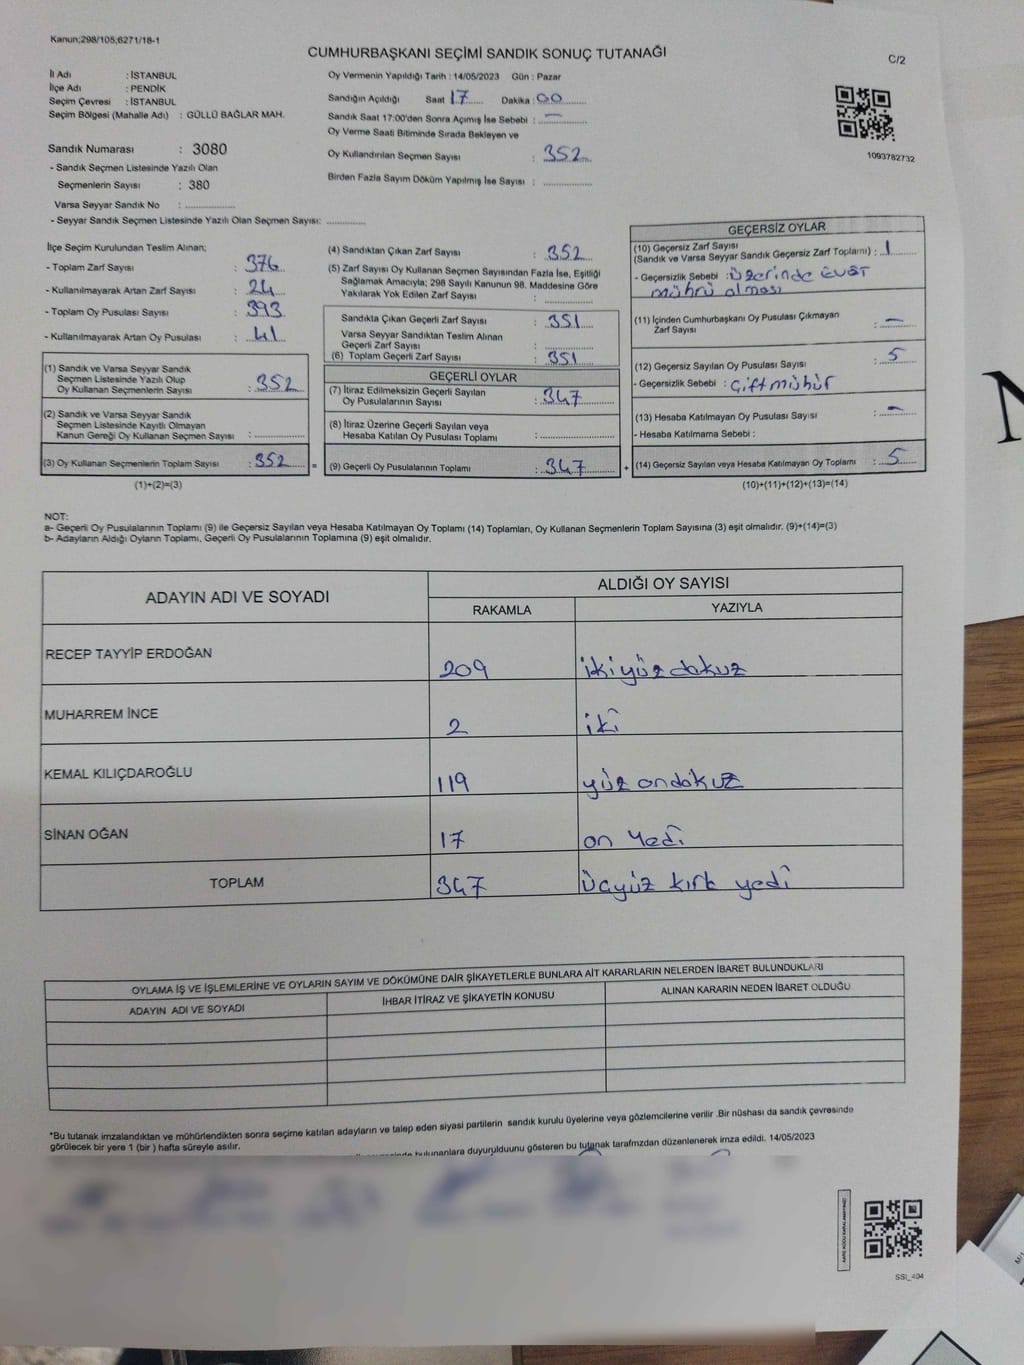 Kanun;298/105;6271/18-1
CUMHURBAŞKANI SEÇİMİ SANDIK SONUÇ TUTANAĞI
C/2
İl Adı : İSTANBUL
İlçe Adı : PENDİK
Seçim Çevresi : İSTANBUL
Seçim Bölgesi (Mahalle Adı) : GÜLLÜ BAĞLAR MAH.
Sandık Numarası : 3080
- Sandık Seçmen Listesinde Yazılı Olan
Seçmenlerin Sayısı : 380
Varsa Seyyar Sandık No : ................
- Seyyar Sandık Seçmen Listesinde Yazılı Olan Seçmen Sayısı: ............
Oy Vermenin Yapıldığı Tarih : 14/05/2023 Gün : Pazar
Sandığın Açıldığı Saat 17 Dakika : 00
Sandık Saat 17:00'den Sonra Açımış İse Sebebi : —
Oy Verme Saati Bitiminde Sırada Bekleyen ve
Oy Kullandırılan Seçmen Sayısı : 352
Birden Fazla Sayım Döküm Yapılmış İse Sayısı : ................
1093782732
İlçe Seçim Kurulundan Teslim Alınan;
- Toplam Zarf Sayısı : 376
- Kullanılmayarak Artan Zarf Sayısı : 24
- Toplam Oy Pusulası Sayısı : 393
- Kullanılmayarak Artan Oy Pusulası : 41
(1) Sandık ve Varsa Seyyar Sandık
Seçmen Listesinde Yazılı Olup
Oy Kullanan Seçmenlerin Sayısı : 352
(2) Sandık ve Varsa Seyyar Sandık
Seçmen Listesinde Kayıtlı Olmayan
Kanun Gereği Oy Kullanan Seçmen Sayısı : ................
(3) Oy Kullanan Seçmenlerin Toplam Sayısı : 352 =
(1)+(2)=(3)
(4) Sandıktan Çıkan Zarf Sayısı : 352
(5) Zarf Sayısı Oy Kullanan Seçmen Sayısından Fazla İse, Eşitliği
Sağlamak Amacıyla; 298 Sayılı Kanunun 98. Maddesine Göre
Yakılarak Yok Edilen Zarf Sayısı : ................
Sandıkta Çıkan Geçerli Zarf Sayısı : 351
Varsa Seyyar Sandıktan Teslim Alınan
Geçerli Zarf Sayısı : ................
(6) Toplam Geçerli Zarf Sayısı : 351
GEÇERLİ OYLAR
(7) İtiraz Edilmeksizin Geçerli Sayılan
Oy Pusulalarının Sayısı : 347
(8) İtiraz Üzerine Geçerli Sayılan veya
Hesaba Katılan Oy Pusulası Toplamı : ................
(9) Geçerli Oy Pusulalarının Toplamı : 347 +
GEÇERSİZ OYLAR
(10) Geçersiz Zarf Sayısı
(Sandık ve Varsa Seyyar Sandık Geçersiz Zarf Toplamı) : 1
- Geçersizlik Sebebi : üzerinde evet
mührü olması
(11) İçinden Cumhurbaşkanı Oy Pusulası Çıkmayan
Zarf Sayısı : —
(12) Geçersiz Sayılan Oy Pusulası Sayısı : 5
- Geçersizlik Sebebi : Çift mühür
(13) Hesaba Katılmayan Oy Pusulası Sayısı : —
- Hesaba Katılmama Sebebi :
(14) Geçersiz Sayılan veya Hesaba Katılmayan Oy Toplamı : 5
(10)+(11)+(12)+(13)=(14)
NOT:
a- Geçerli Oy Pusulalarının Toplamı (9) ile Geçersiz Sayılan veya Hesaba Katılmayan Oy Toplamı (14) Toplamları, Oy Kullanan Seçmenlerin Toplam Sayısına (3) eşit olmalıdır. (9)+(14)=(3)
b- Adayların Aldığı Oyların Toplamı, Geçerli Oy Pusulalarının Toplamına (9) eşit olmalıdır.
ADAYIN ADI VE SOYADI
ALDIĞI OY SAYISI
RAKAMLA YAZIYLA
RECEP TAYYİP ERDOĞAN 209 ikiyüz dokuz
MUHARREM İNCE 2 iki
KEMAL KILIÇDAROĞLU 119 yüz ondokuz
SİNAN OĞAN 17 on yedi
TOPLAM 347 üçyüz kırk yedi
OYLAMA İŞ VE İŞLEMLERİNE VE OYLARIN SAYIM VE DÖKÜMÜNE DAİR ŞİKAYETLERLE BUNLARA AİT KARARLARIN NELERDEN İBARET BULUNDUKLARI
ADAYIN ADI VE SOYADI İHBAR İTİRAZ VE ŞİKAYETİN KONUSU ALINAN KARARIN NEDEN İBARET OLDUĞU
*Bu tutanak imzalandıktan ve mühürlendikten sonra seçime katılan adayların ve talep eden siyasi partilerin sandık kurulu üyelerine veya gözlemcilerine verilir .Bir nüshası da sandık çevresinde
görülecek bir yere 1 (bir ) hafta süreyle asılır.
bulunanlara duyurulduunu gösteren bu tutanak tarafmzdan düzenlenerek imza edildi. 14/05/2023
SSI_404